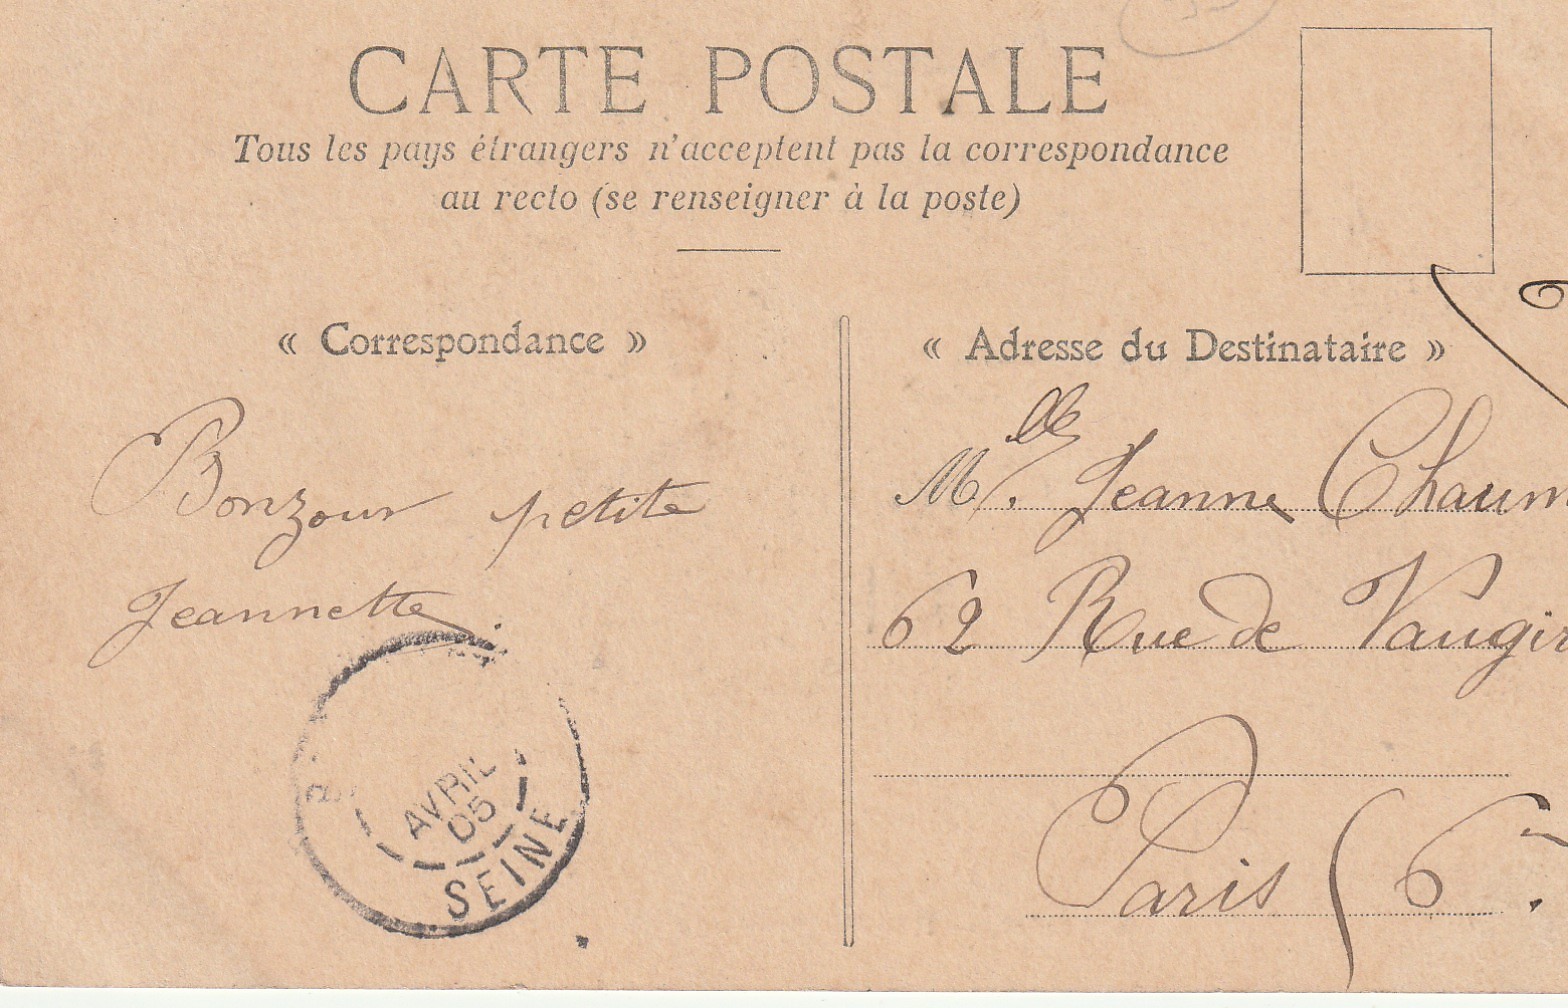 CARTE POSTALE
Tous les pays étrangers n'acceptent pas la correspondance
au recto (se renseigner à la poste)
« Correspondance »
« Adresse du Destinataire »
Bonzour petite
Jeannette.
Mlle. Jeanne Chaum
62 Rue de Vaugir
Paris (6.
AVRIL
05
SEINE